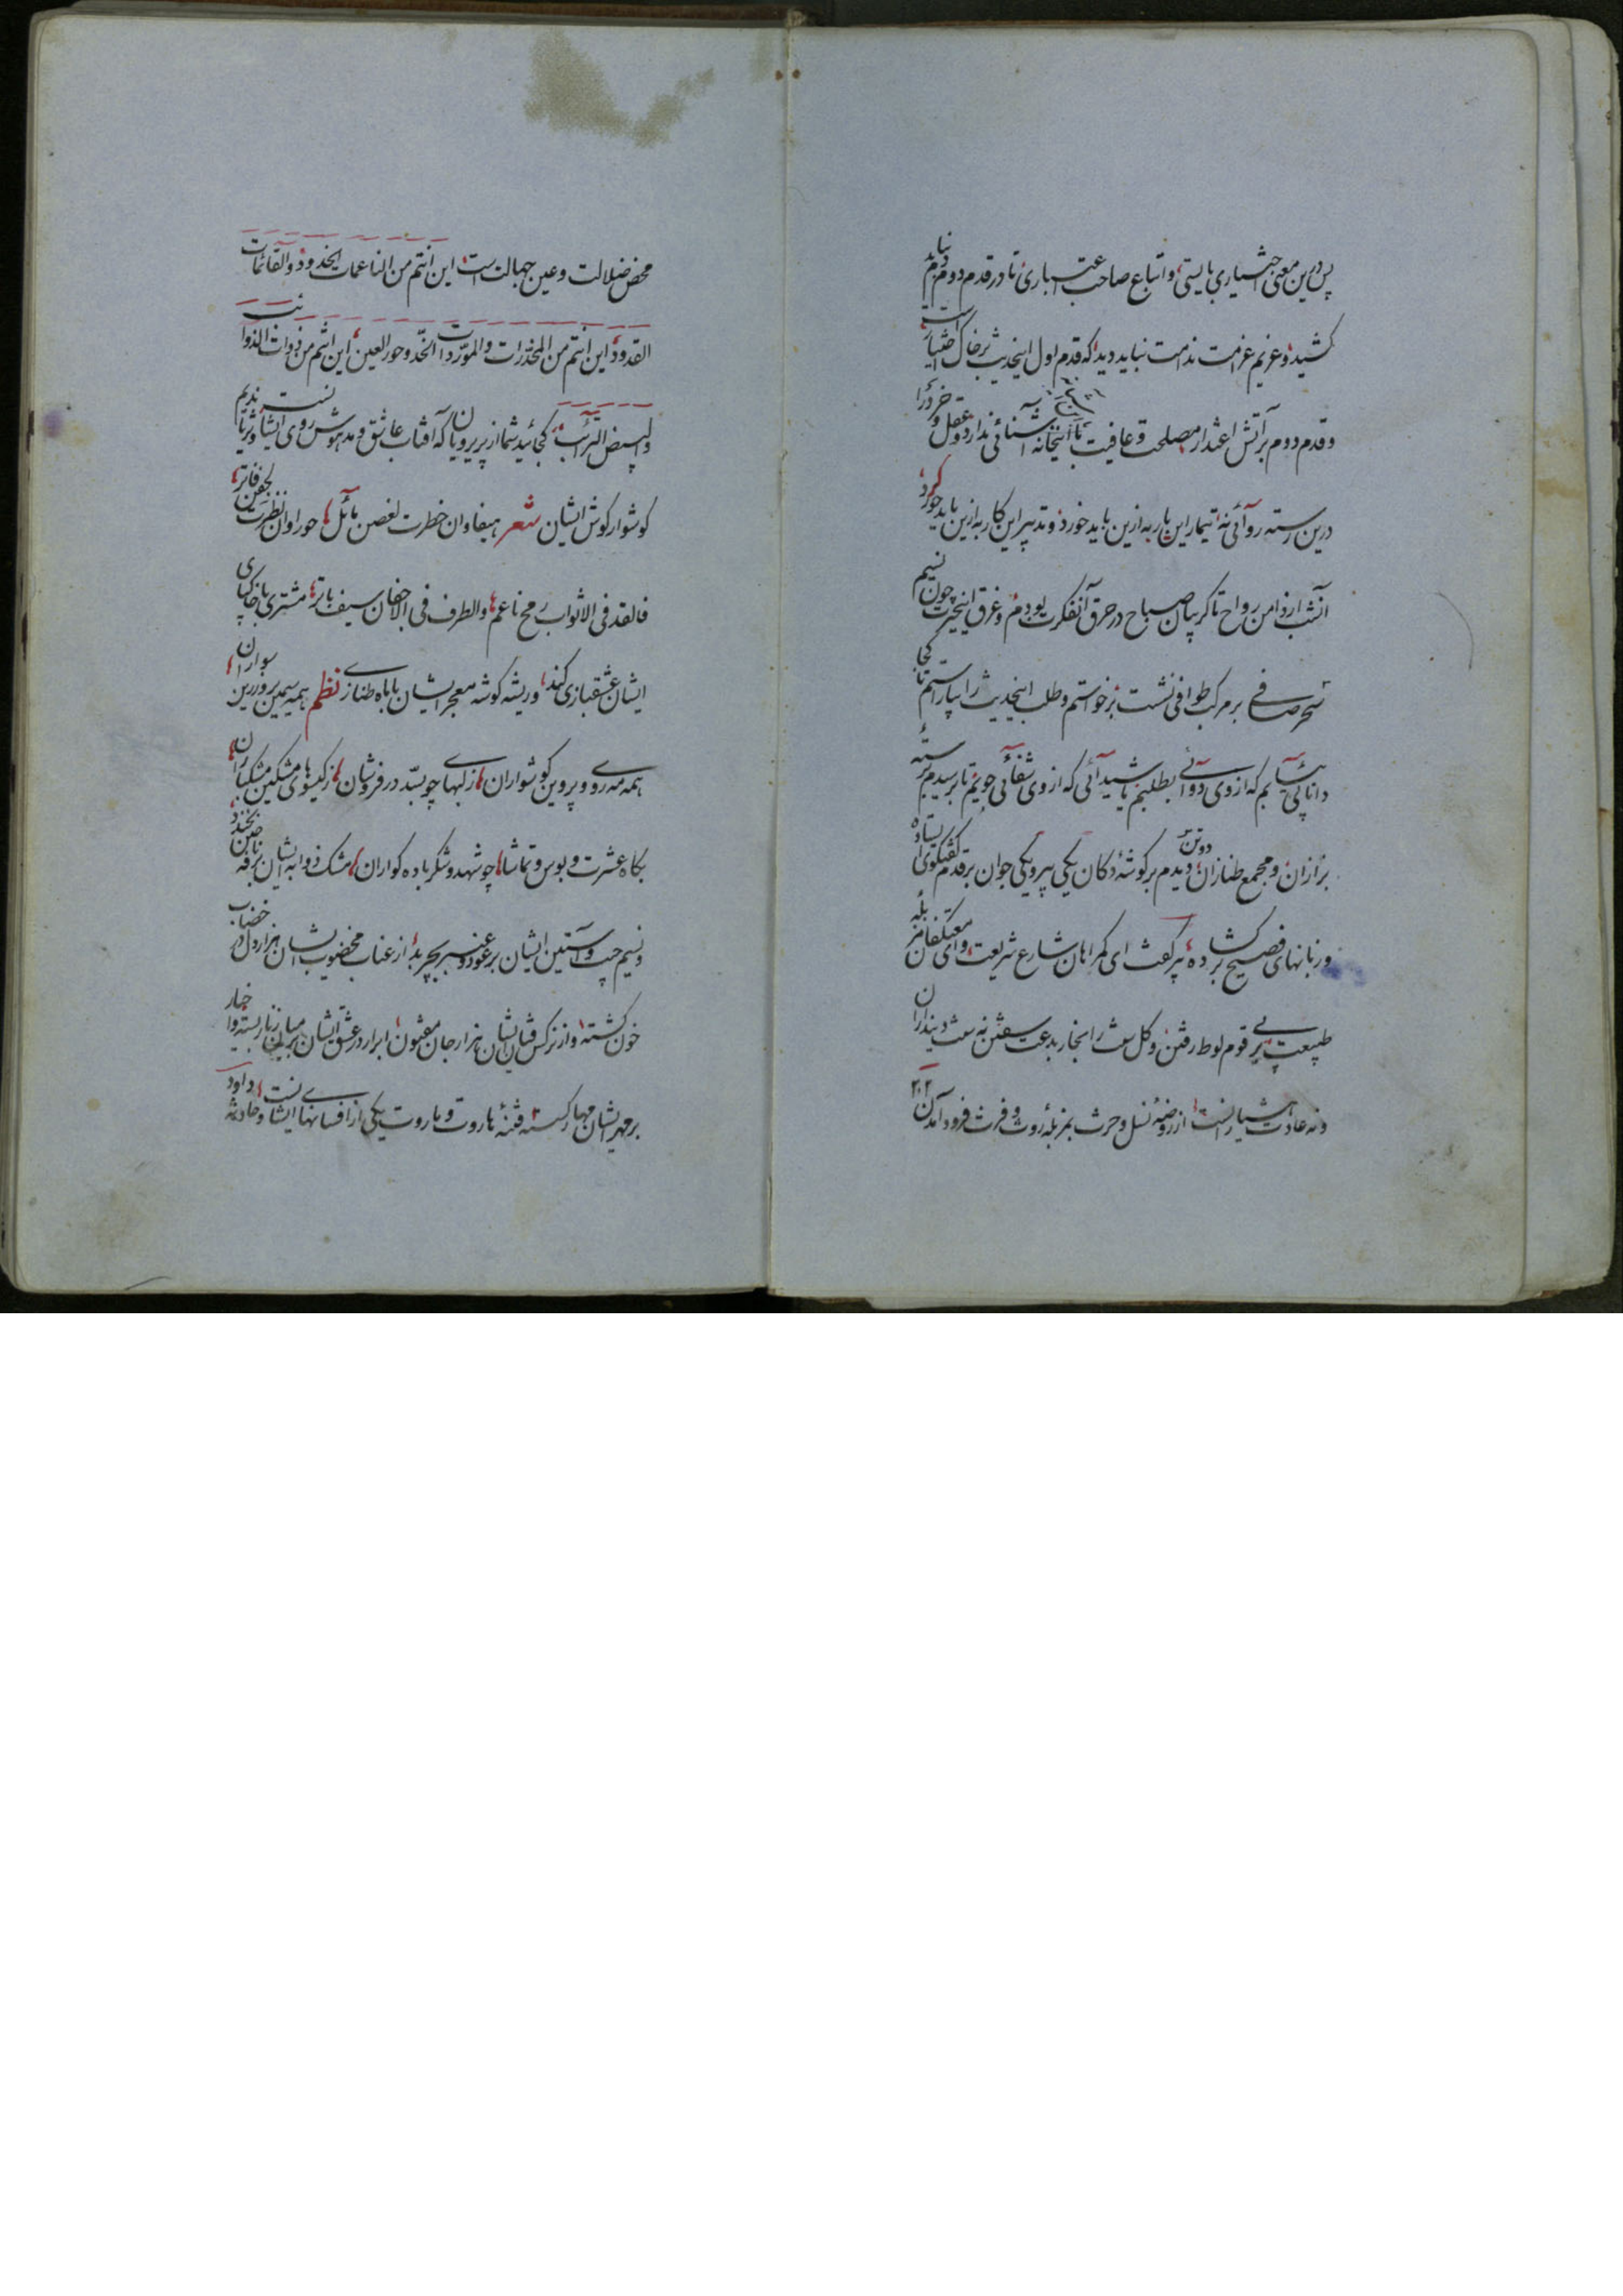 پس درین معنی اختیاری بایستی و اتباع صاحب اعتباری تا در قدم دوم دم نباید
کشید و غریم غرامت ندامت نباید دید که قدم اول اینحدیث بر خاک اختیار است
و قدم دوم بر آتش اعتذار مصلحت و عافیت با اینخانه آشنائی ندارد و عقل و خرد را
درین رسته روائی نه تیمار این بار به ازین باید خورد و تدبیر این کار به ازین باید کرد
آنشب از دامن رواح تا گریبان صباح در حرق آنفکرت بودم و غرق اینحیرت چون نسیم
سحر صافی بر مرکب طوافی نشست برخواستم و طلب اینحدیث را بیاراستم تا کجا
دانائی یابم که از وی دوائی بطلبم یا شیدائی که از وی شفائی جویم تا برسیدم برسته
بزازان و مجمع طنازان دو تن دیدم بر گوشه دکان یکی پیر و یکی جوان بر قدم گفتگوی ایستاده
و زبانهای فصیح بر گشاده پیر گفت ای گمراهان شارع شریعت و ای معتکفان مزبله
طبیعت پی بر پی قوم لوط رفتن و گل سفت را بخار بدعت سفتن نه سمت دینداران
و نه عادت هشیارانست از روضه نسل و حرث بمزبله روث و فرث فرود آمدن
۲۰۲
محض ضلالت و عین جهالت است این انتم من الناعمات الخدود و القائمات
القدود این انتم من المخدرات و الموردات الخد و حور العین این انتم من ذوات الذوائب
و البیض الترائب کجائید شما از پریرویان که آفتاب عاشق و مدهوش روی ایشانست و ثریا ندیم
گوشوار گوش ایشان شعر هیفاء ان خطرت لغصن مائل حوراء ان نظرت بجفن فاتر
فالقد فی الاثواب رمح ناعم والطرف فی الاجفان سیف باتر مشتری با چاکی
ایشان عشقبازی کند و ریشه گوشه معجر ایشان با ماه طنازی نظم همه سیمین بر و زرین سواران
همه مه روی و پروین گوشواران ز لبهای چو بسد در فروشان ز گیسوی مشکین مشکباران
بگاه عشرت و بوس و تماشا چو شهد و شکر باده گواران مشک ذوابه ایشان بر نافه چین بخندد
و نسیم جیب و آستین ایشان بر عود و عنبر بچربد از عناب مخضوب ایشان هزار دل در خضاب
خون گشته و از نرگس فتان ایشان هزار جان مفتون ابرار در عشق ایشان بر میان زنار بسته و احبار
بر مهر ایشان مهار گسسته فتنه هاروت و ماروت یکی از افسانهای ایشانست و حادثه داود